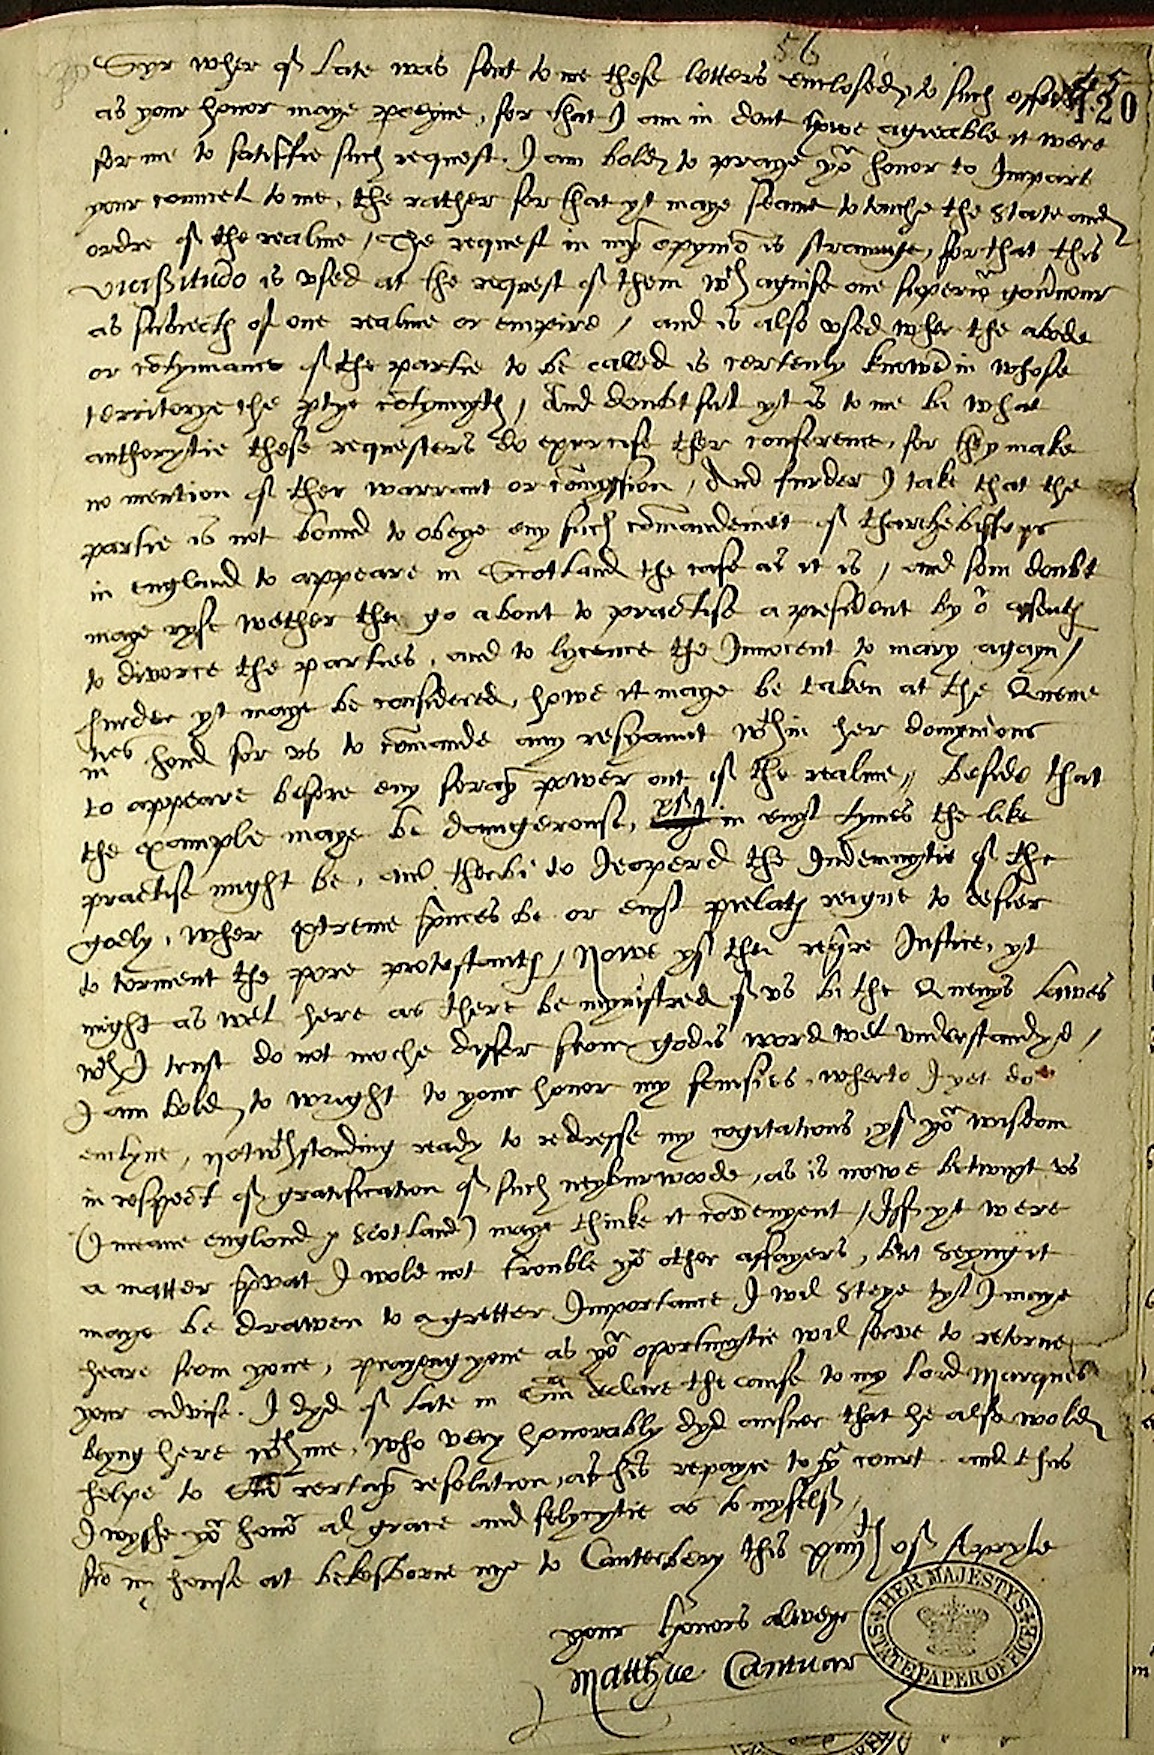 56
120
Syr wher of late was sent to me these letters enclosed, to such effect
as your honor maye perceyve, for that I am in dout howe agreable it were
for me to satisfie such request. I am bold to praye yor honor to Impart
your councel to me, the rather for that yt maye seame to touche the state and
ordre of the realme / The request in my opynio is straunge, for that this
vicissitudo is vsed at the request of them wch agnise one superior governour
as subiects of one realme or empire / and is also vsed wher the abode
or cotynuance of the partie to be called is certenly knowen in whose
territorye the ptye cotynuyth / And doubtful yt is to me bi what
authorytie these requesters do exercise ther conference, for they make
no mention of ther warrant or comyssion / And furder I take that the
partie is not bound to obeye eny such comandemet of tharchebisshops
in england to appeare in Scotland the case as it is / and som doubt
maye ryse wether thei go about to practise a president by or assents
to divorce the parties, and to lycence the Innocent to mary agayn /
furder yt maye be considered, howe it maye be taken at the Quene
ties hond for vs to comande any resyaunt wthin her domynions
in
to appeare before eny foray power out of the realme // beside that
the example maye be daungerouse, yf in enys tymes the like
practise myght be, and therbi to Jeoperd the Indemnytie of the
godly, wher extreme princes be or enys prelats reigne to desier
to torment the pore protestants / Nowe yf thei reqre Justice, yt
might as wel here as there be mynistred of vs bi the Quenys lawes
wch I trust do not moche differ from godis word wel vnderstandyd /
I am bold to wright to your honor my fansies, wherto I yet do
enclyne, notwthstanding ready to redresse my cogitations, yf yor wisdom
in respect of gratification of such neyburwoode, as is nowe betwixt vs
(I meane englond & Scotland) maye thinke it convenyent / Iff yt were
a matter privat I wold not trouble yor other affayers, but seyng it
maye be drawen to a gretter Importance I wil steye tyl I maye
heare from youe, prayeng youe as yor oportunytie wil serve to retorne
your advise. I dyd of late in Com declare the cause to my Lord Marques
beyng here wth me, who very honorably dyd answer that he also wold
helpe to certayn resolution, at his repayre to ye court. and thus
I wysshe yor honor al grace and felycytie as to myself /
fro my house at bekesborne nye to Canterbery this xiiijth of Apryle
your honors alweye
Matthue Cantuar
HER MAJESTY'S
STATE PAPER OFFICE